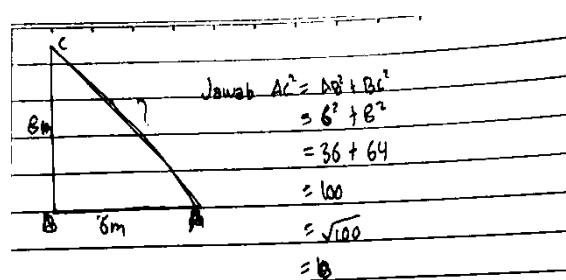 C
?
8m
B
6m
A
Jawab AC² = AB² + BC²
= 6² + 8²
= 36 + 64
= 100
= √100
= 10